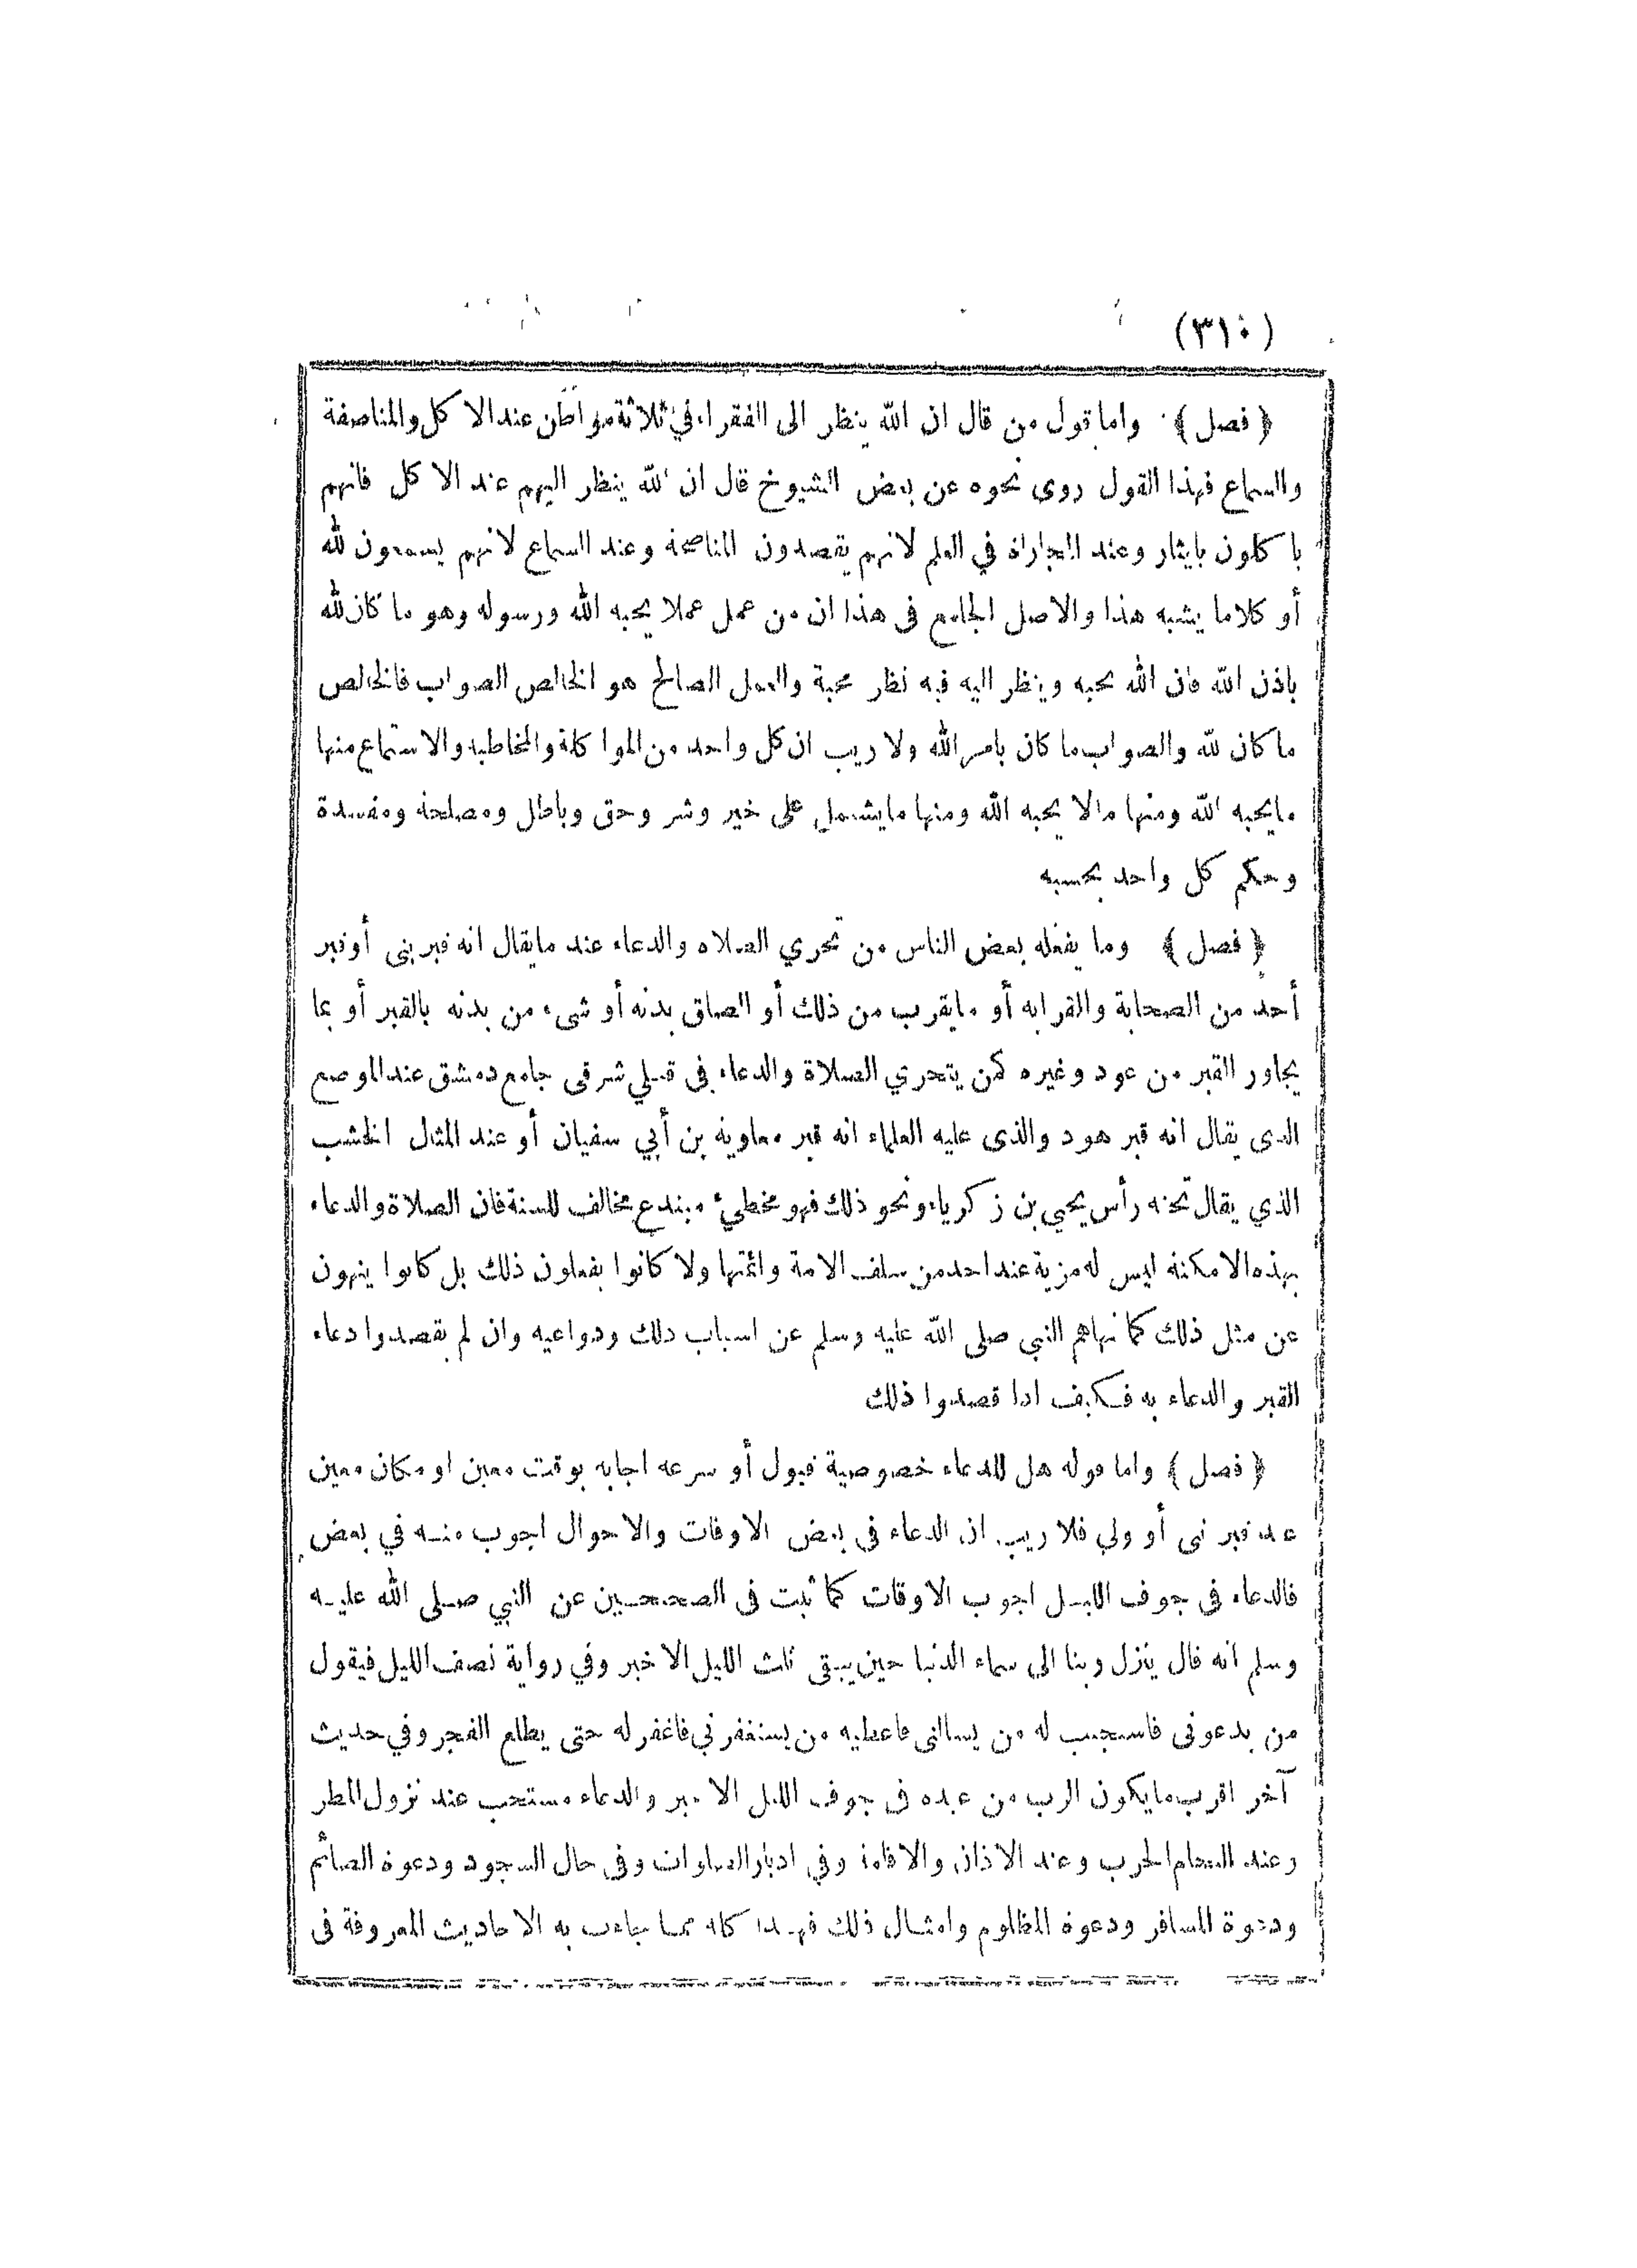 (٣١٠)
﴿ فصل ﴾ واما قول من قال ان الله ينظر الى الفقراء في ثلاثة مواطن عند الاكل والمناصفة
والسماع فهذا القول روى نحوه عن بعض الشيوخ قال ان الله ينظر اليهم عند الاكل فانهم
ياكلون بايثار وعند المجاراة في العلم لانهم يقصدون المناصحة وعند السماع لانهم يسمعون لله
أو كلاما يشبه هذا والاصل الجامع فى هذا ان من عمل عملا يحبه الله ورسوله وهو ما كان لله
باذن الله فان الله يحبه وينظر اليه فيه نظر محبة والعمل الصالح هو الخالص الصواب فالخالص
ما كان لله والصواب ما كان بامر الله ولا ريب ان كل واحد من المواكلة والمخاطبة والاستماع منها
مايحبه الله ومنها مالا يحبه الله ومنها مايشمل على خير وشر وحق وباطل ومصلحة ومفسدة
وحكم كل واحد بحسبه
﴿ فصل ﴾ وما يفعله بعض الناس من تحري الصلاة والدعاء عند مايقال انه قبر نبى أو قبر
أحد من الصحابة والقرابة أو مايقرب من ذلك أو الصاق بدنه أو شيء من بدنه بالقبر أو بما
يجاور القبر من عود وغيره كمن يتحري الصلاة والدعاء فى قبلي شرقى جامع دمشق عند الموضع
الذى يقال انه قبر هود والذى عليه العلماء انه قبر معاوية بن أبي سفيان أو عند المثال الخشب
الذي يقال تحته رأس يحيي بن زكرياء ونحو ذلك فهو مخطيء مبتدع مخالف للسنة فان الصلاة والدعاء
بهذه الامكنة ليس له مزية عند احد من سلف الامة وائمتها ولا كانوا يفعلون ذلك بل كانوا ينهون
عن مثل ذلك كما نهاهم النبي صلى الله عليه وسلم عن اسباب ذلك ودواعيه وان لم يقصدوا دعاء
القبر والدعاء به فكيف اذا قصدوا ذلك
﴿ فصل ﴾ واما قوله هل للدعاء خصوصية قبول أو سرعة اجابة بوقت معين او مكان معين
عند قبر نبى أو ولي فلا ريب ان الدعاء فى بعض الاوقات والاحوال اجوب منه في بعض
فالدعاء فى جوف الليل اجوب الاوقات كما ثبت فى الصحيحين عن النبي صلى الله عليه
وسلم انه قال ينزل ربنا الى سماء الدنيا حين يبقى ثلث الليل الاخير وفي رواية نصف الليل فيقول
من يدعونى فاستجيب له من يسالنى فاعطيه من يستغفرني فاغفر له حتى يطلع الفجر وفي حديث
آخر اقرب مايكون الرب من عبده فى جوف الليل الاخير والدعاء مستحب عند نزول المطر
وعند التحام الحرب وعند الاذان والاقامة وفي ادبار الصلوات وفى حال السجود ودعوة الصائم
ودعوة المسافر ودعوة المظلوم وامثال ذلك فهذا كله مما جاءت به الاحاديث المعروفة فى